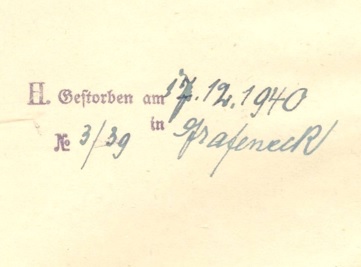 H. Gestorben am 17.12.1940
№ 3/39 in Grafeneck